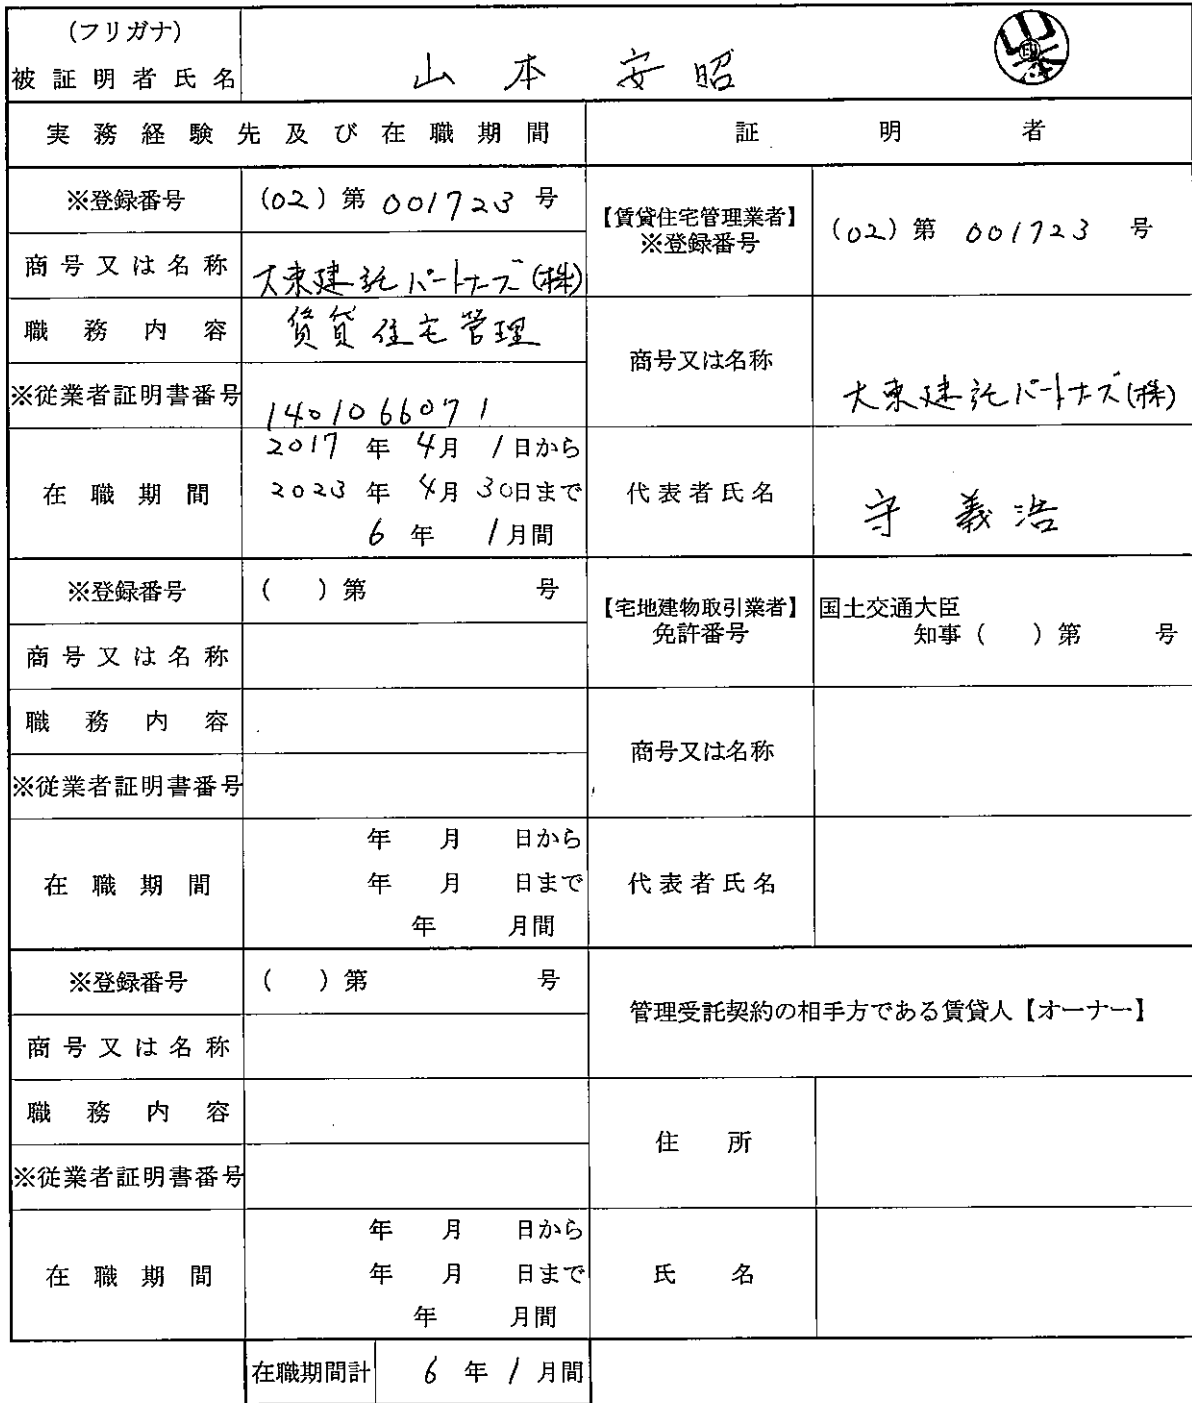 (フリガナ)
被証明者氏名 山本 安昭 印
実務経験先及び在職期間 証明者
※登録番号 (02)第 001723 号
【賃貸住宅管理業者】
※登録番号 (02)第 001723 号
商号又は名称 大東建託パートナーズ(株)
職務内容 賃貸住宅管理
商号又は名称 大東建託パートナーズ(株)
※従業者証明書番号 1401066071
在職期間 2017年 4月 1日から
2023年 4月 30日まで
6年 1月間
代表者氏名 守 義浩
※登録番号 ( )第 号
【宅地建物取引業者】
免許番号
国土交通大臣
知事( )第 号
商号又は名称
職務内容
商号又は名称
※従業者証明書番号
在職期間 年 月 日から
年 月 日まで
年 月間
代表者氏名
※登録番号 ( )第 号
管理受託契約の相手方である賃貸人【オーナー】
商号又は名称
職務内容
住所
※従業者証明書番号
在職期間 年 月 日から
年 月 日まで
年 月間
氏名
在職期間計 6年 1月間